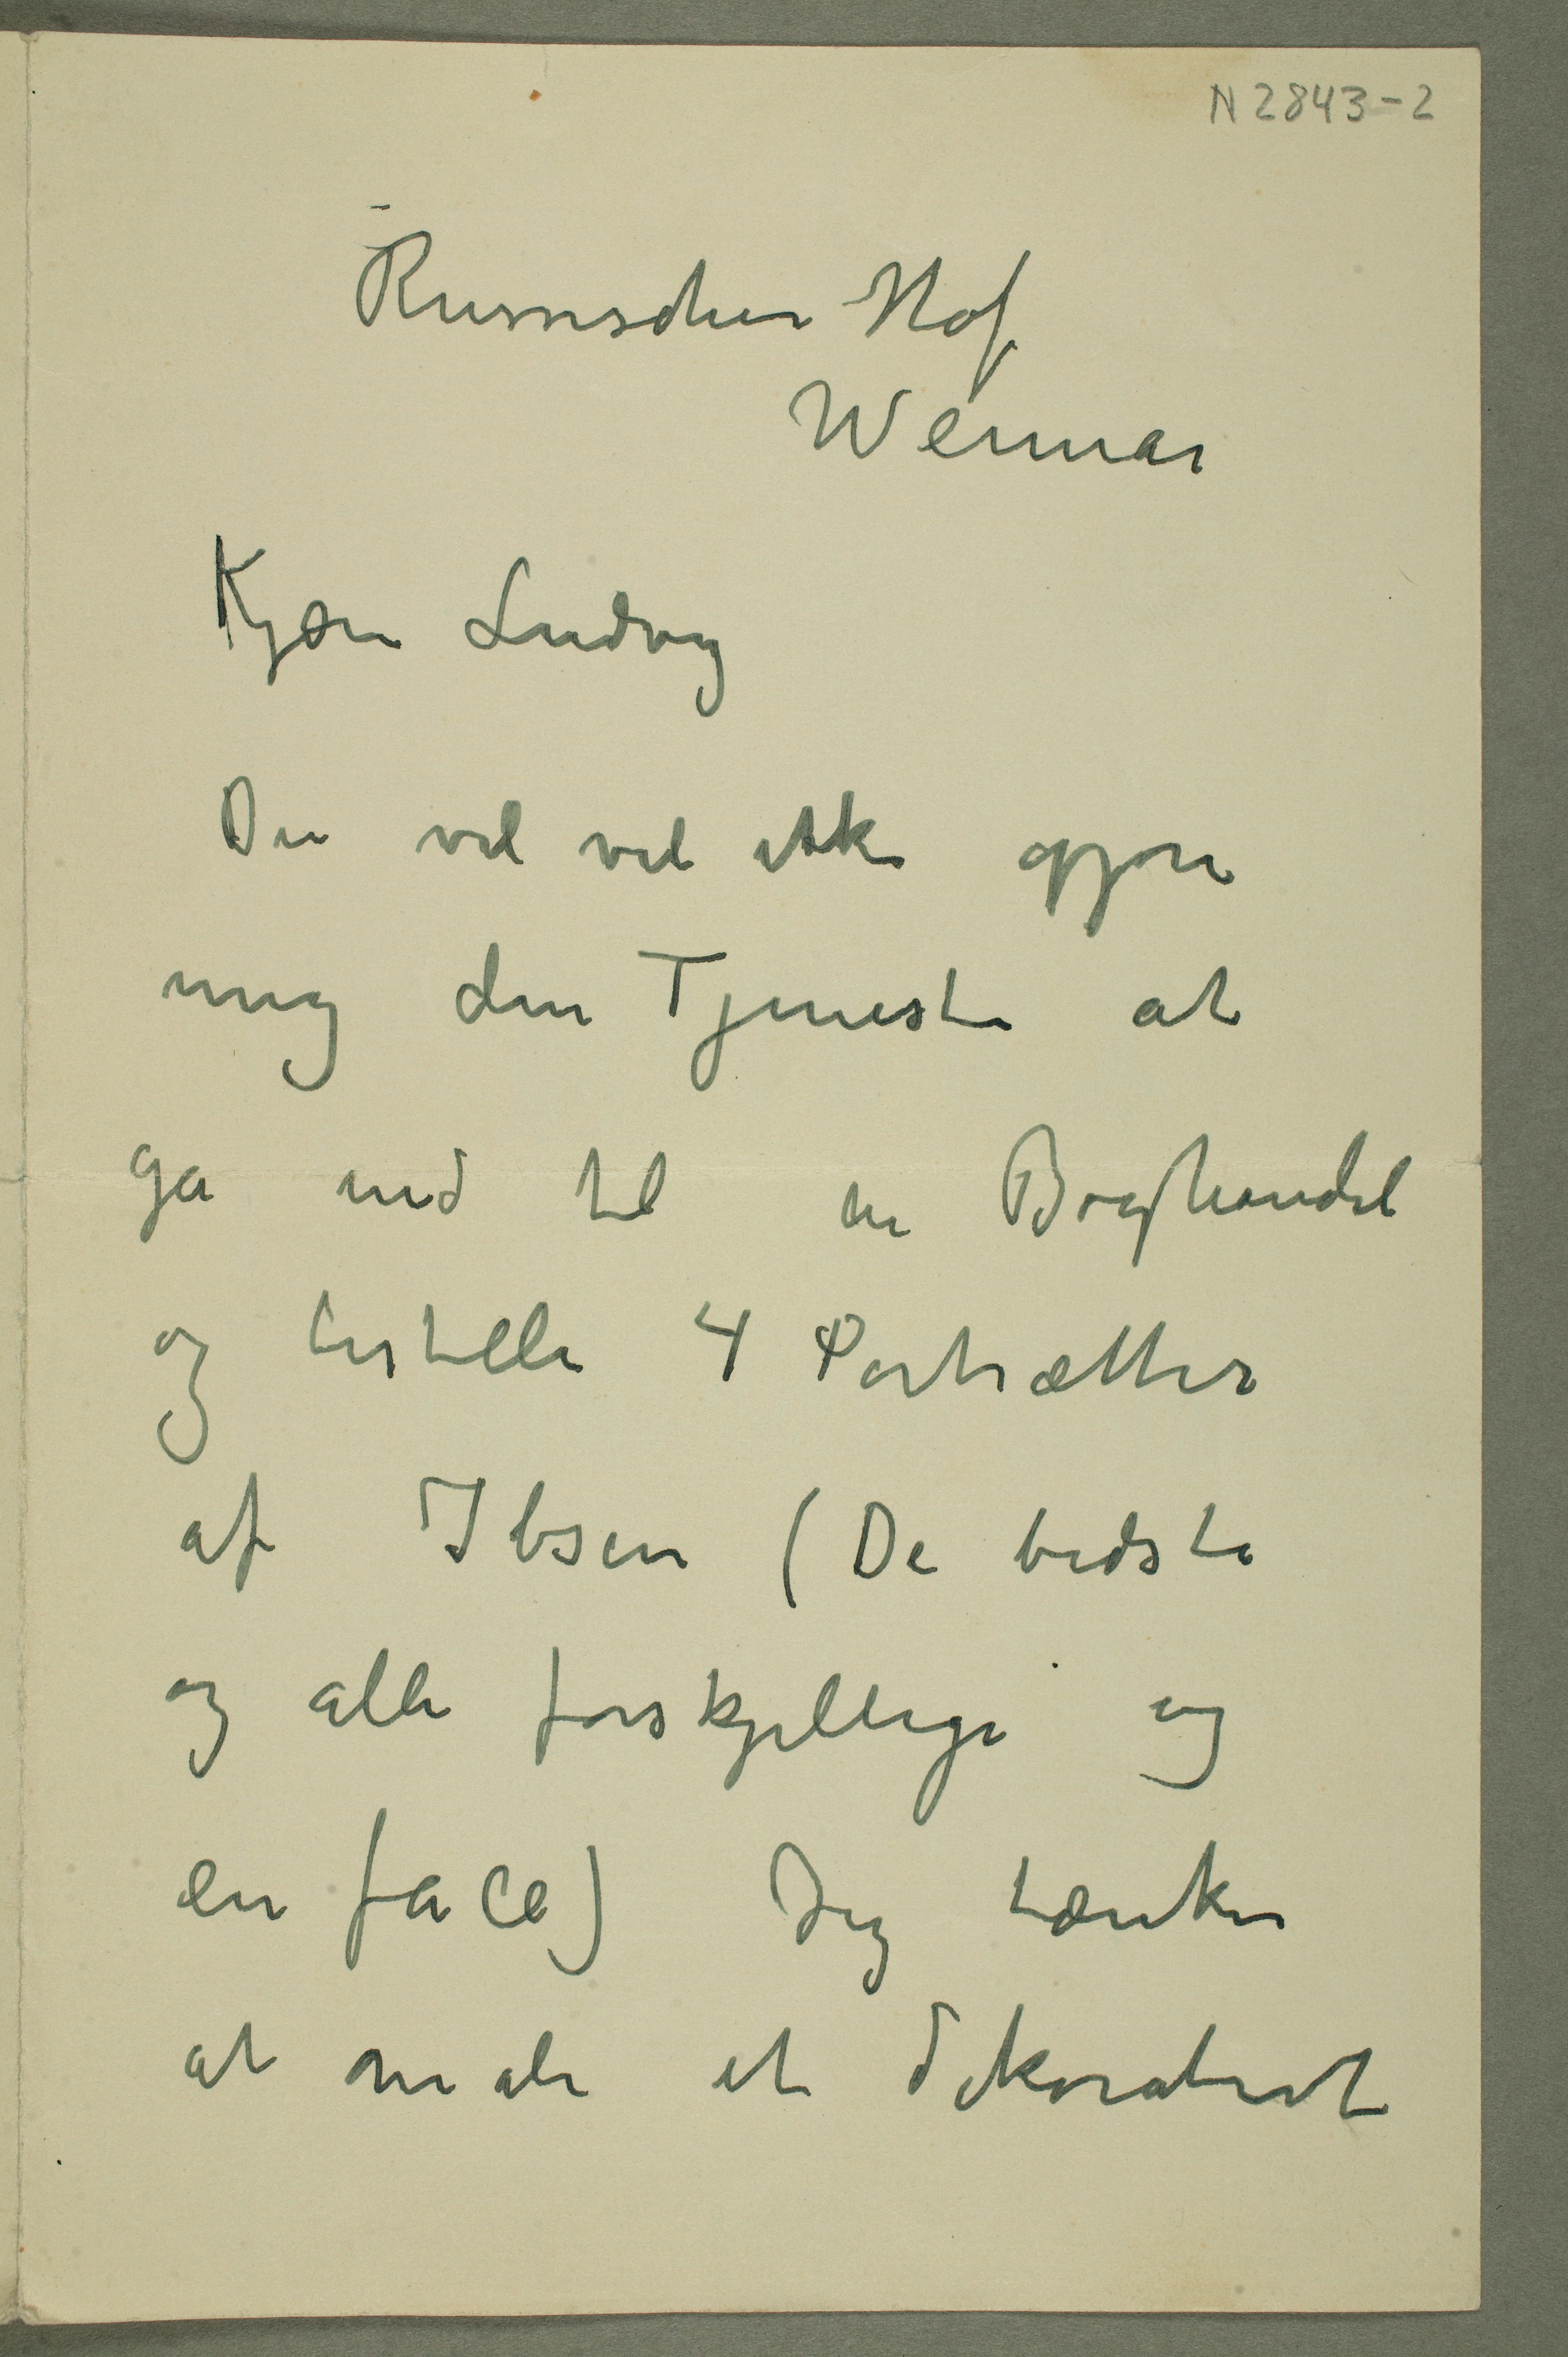 N 2843-2
Russischer Hof
Weimar
Kjære Ludvig
Du vil vel ikke gjøre
mig den Tjeneste at
gå ned til en Boghandel
og bestelle 4 Portrætter
af Ibsen (De bedste
og alle forskjellige og
en face) Jeg tænker
at male et dekorativt